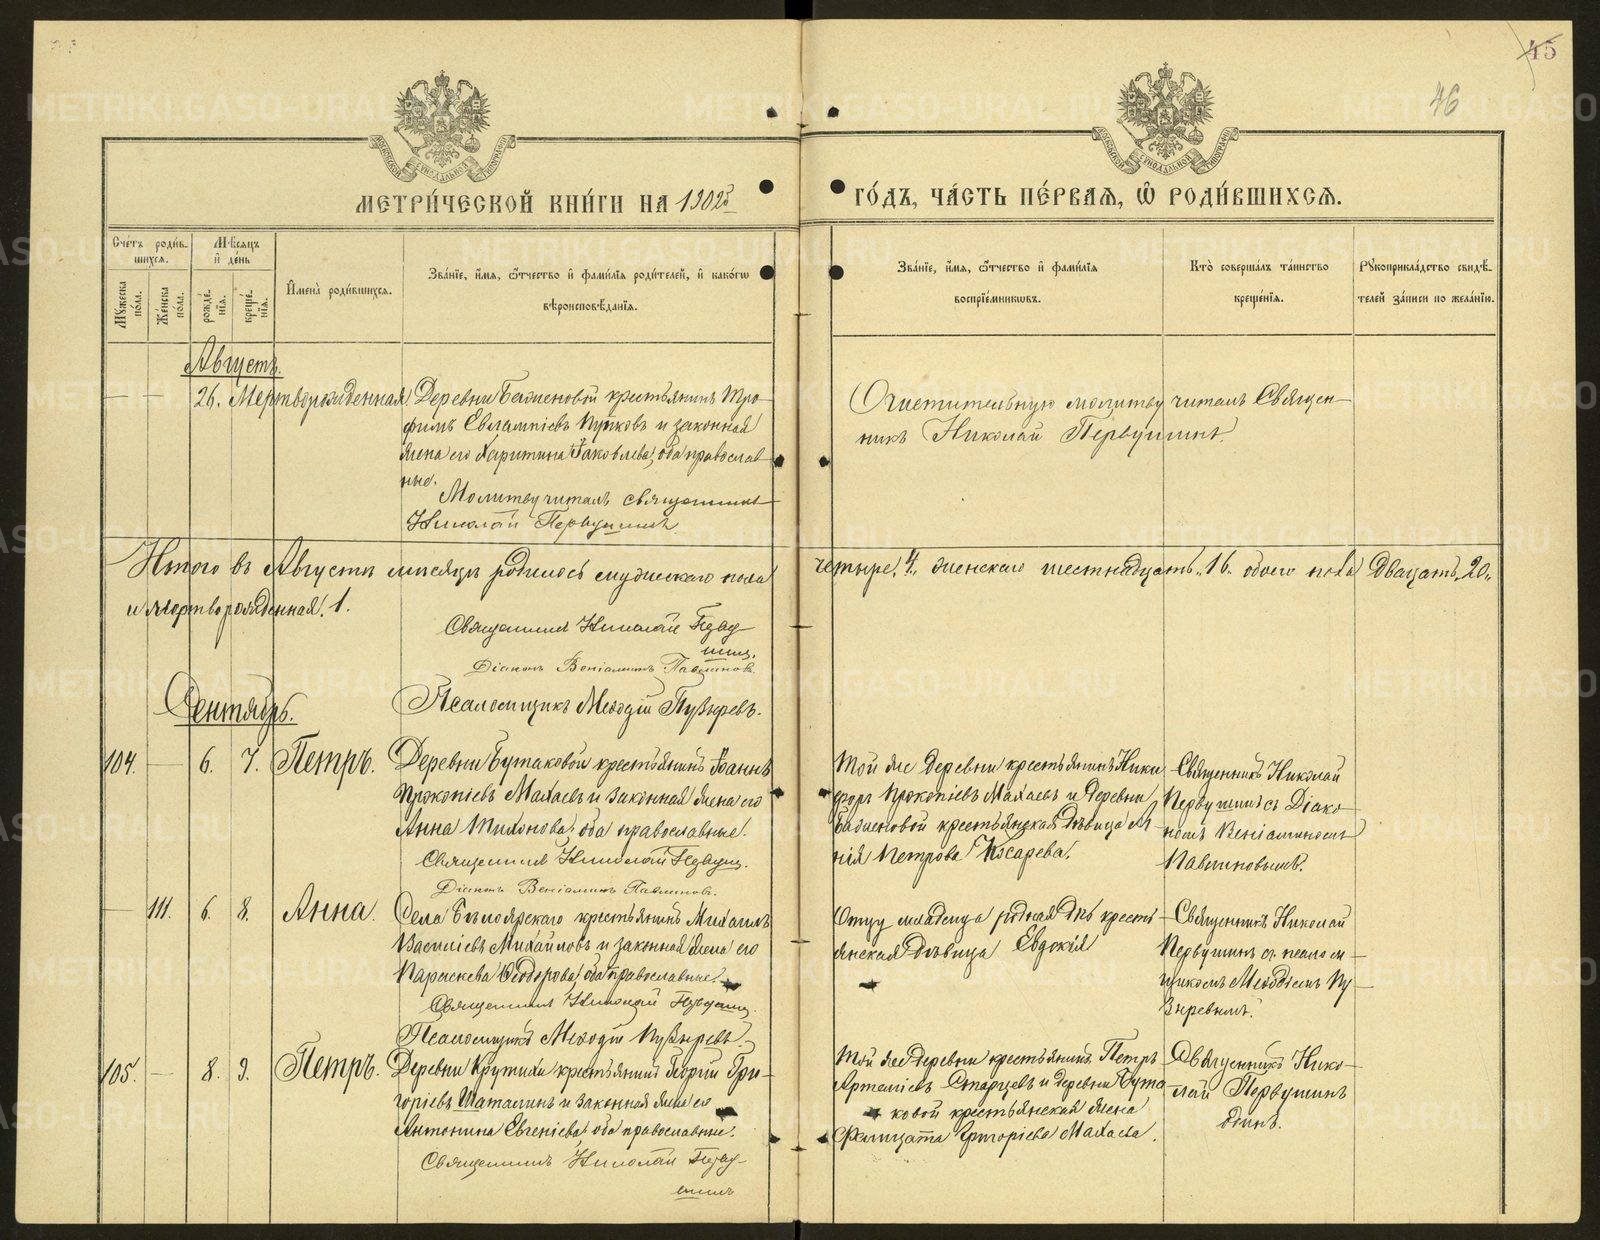 45
46
МЕТРИ́ЧЕСКОЙ КНИ́ГИ НА 1902й
ГО́ДЪ, ЧА́СТЬ ПЕ́РВАЯ, Ѿ РОДИ́ВШИХСЯ.
Сче́тъ роди́в-
шихся.
Мꙋжеска
пола.
Же́нска
пола.
Мѣсяцъ
и де́нь
рожде́-
нія.
креще́-
нія.
Имена̀ роди́вшихся.
Зва́ніе, и́мя, ѻ҆́тчество и фами́лія роди́телей, и како́гѡ
вѣроисповѣ́данія.
Зва́ніе, и́мя, ѻ҆́тчество и фами́лія
воспріе́мниковъ.
Кто̀ соверша́лъ та́инство
креще́нія.
Рꙋкоприкла́дство свидѣ́-
телей за́писи по жела́нію.
Августъ.
— — 26. Мертворожденная. Деревни Баженовой крестьянинъ Тро-
фимъ Евлампіевъ Пупковъ и законная
жена его Харитина Іаковлева, оба православ-
ные.
Молитву читалъ священникъ
Николай Первушинъ.
Очистительную молитву читалъ Священ-
никъ Николай Первушинъ.
Итого въ Августѣ мѣсяцѣ родилось мужескаго пола четыре „4„ женскаго шестнадцать „16„ обоего пола двацать „20„
и мертворожденная 1.
Священникъ Николай Перву-
шинъ.
Діаконъ Веніаминъ Павлиновъ.
Псаломщикъ Меѳодій Пузыревъ.
Сентябрь.
104. — 6. 7. Петръ. Деревни Бутаковой крестьянинъ Іоаннъ
Прокопіевъ Махаевъ и законная жена его
Анна Тихонова, оба православные.
Священникъ Николай Первушинъ.
Діаконъ Веніаминъ Павлиновъ.
Той же деревни крестьянинъ Ники-
форъ Прокопіевъ Махаевъ и деревни
Баженовой крестьянская дѣвица
Петрова Косарева.
Священникъ Николай
Первушинъ съ Діако-
номъ Веніаминомъ
Павлиновымъ.
— 111. 6. 8. Анна. Села Бѣлоярскаго крестьянинъ Михаилъ
Василіевъ Михайловъ и законная жена его
Параскева Ѳеодорова, оба православные.
Священникъ Николай Первушинъ.
Псаломщикъ Меѳодій Пузыревъ.
Отцу младенца родная дщь кресть-
янская дѣвица Евдокія
Священникъ Николай
Первушинъ съ псалом-
щикомъ Меѳодіемъ Пу-
зыревымъ.
105. — 8. 9. Петръ. Деревни Крутихи крестьянинъ Георгій Гри-
горіевъ Шаталинъ и законная жена его
Антонина Евгеніева, оба православные.
Священникъ Николай Перву-
шинъ
Той же деревни крестьянинъ Петръ
Артеміевъ Старцевъ и деревни Бута-
ковой крестьянская жена
Фелицата Григоріева Махаева.
Священникъ Нико-
лай Первушинъ
одинъ.
METRIKI.GASO-URAL.RU